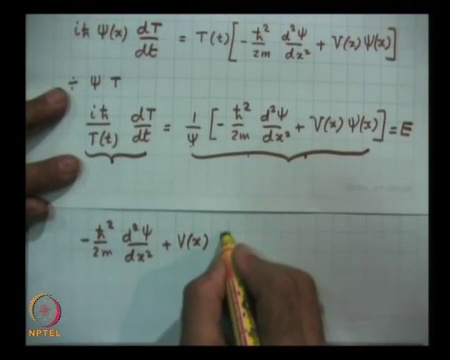 iħ Ψ(x) dT/dt = T(t) [ - ħ²/2m d²Ψ/dx² + V(x) Ψ(x) ]
÷ Ψ T
iħ/T(t) dT/dt = 1/Ψ [ - ħ²/2m d²Ψ/dx² + V(x) Ψ(x) ] = E
- ħ²/2m d²Ψ/dx² + V(x)
NPTEL